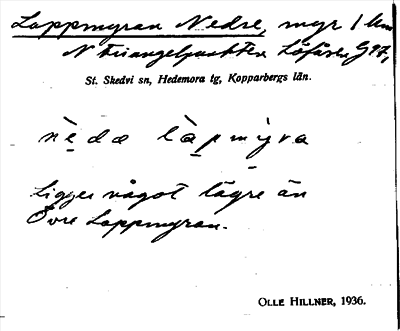 Lappmyran Nedre, myr 1 km
N triangelpunkten Löfåsen G 47,
St. Skedvi sn, Hedemora tg, Kopparbergs län.
nèda làpmyra
Ligger något lägre än
Övre Lappmyran.
OLLE HILLNER, 1936.